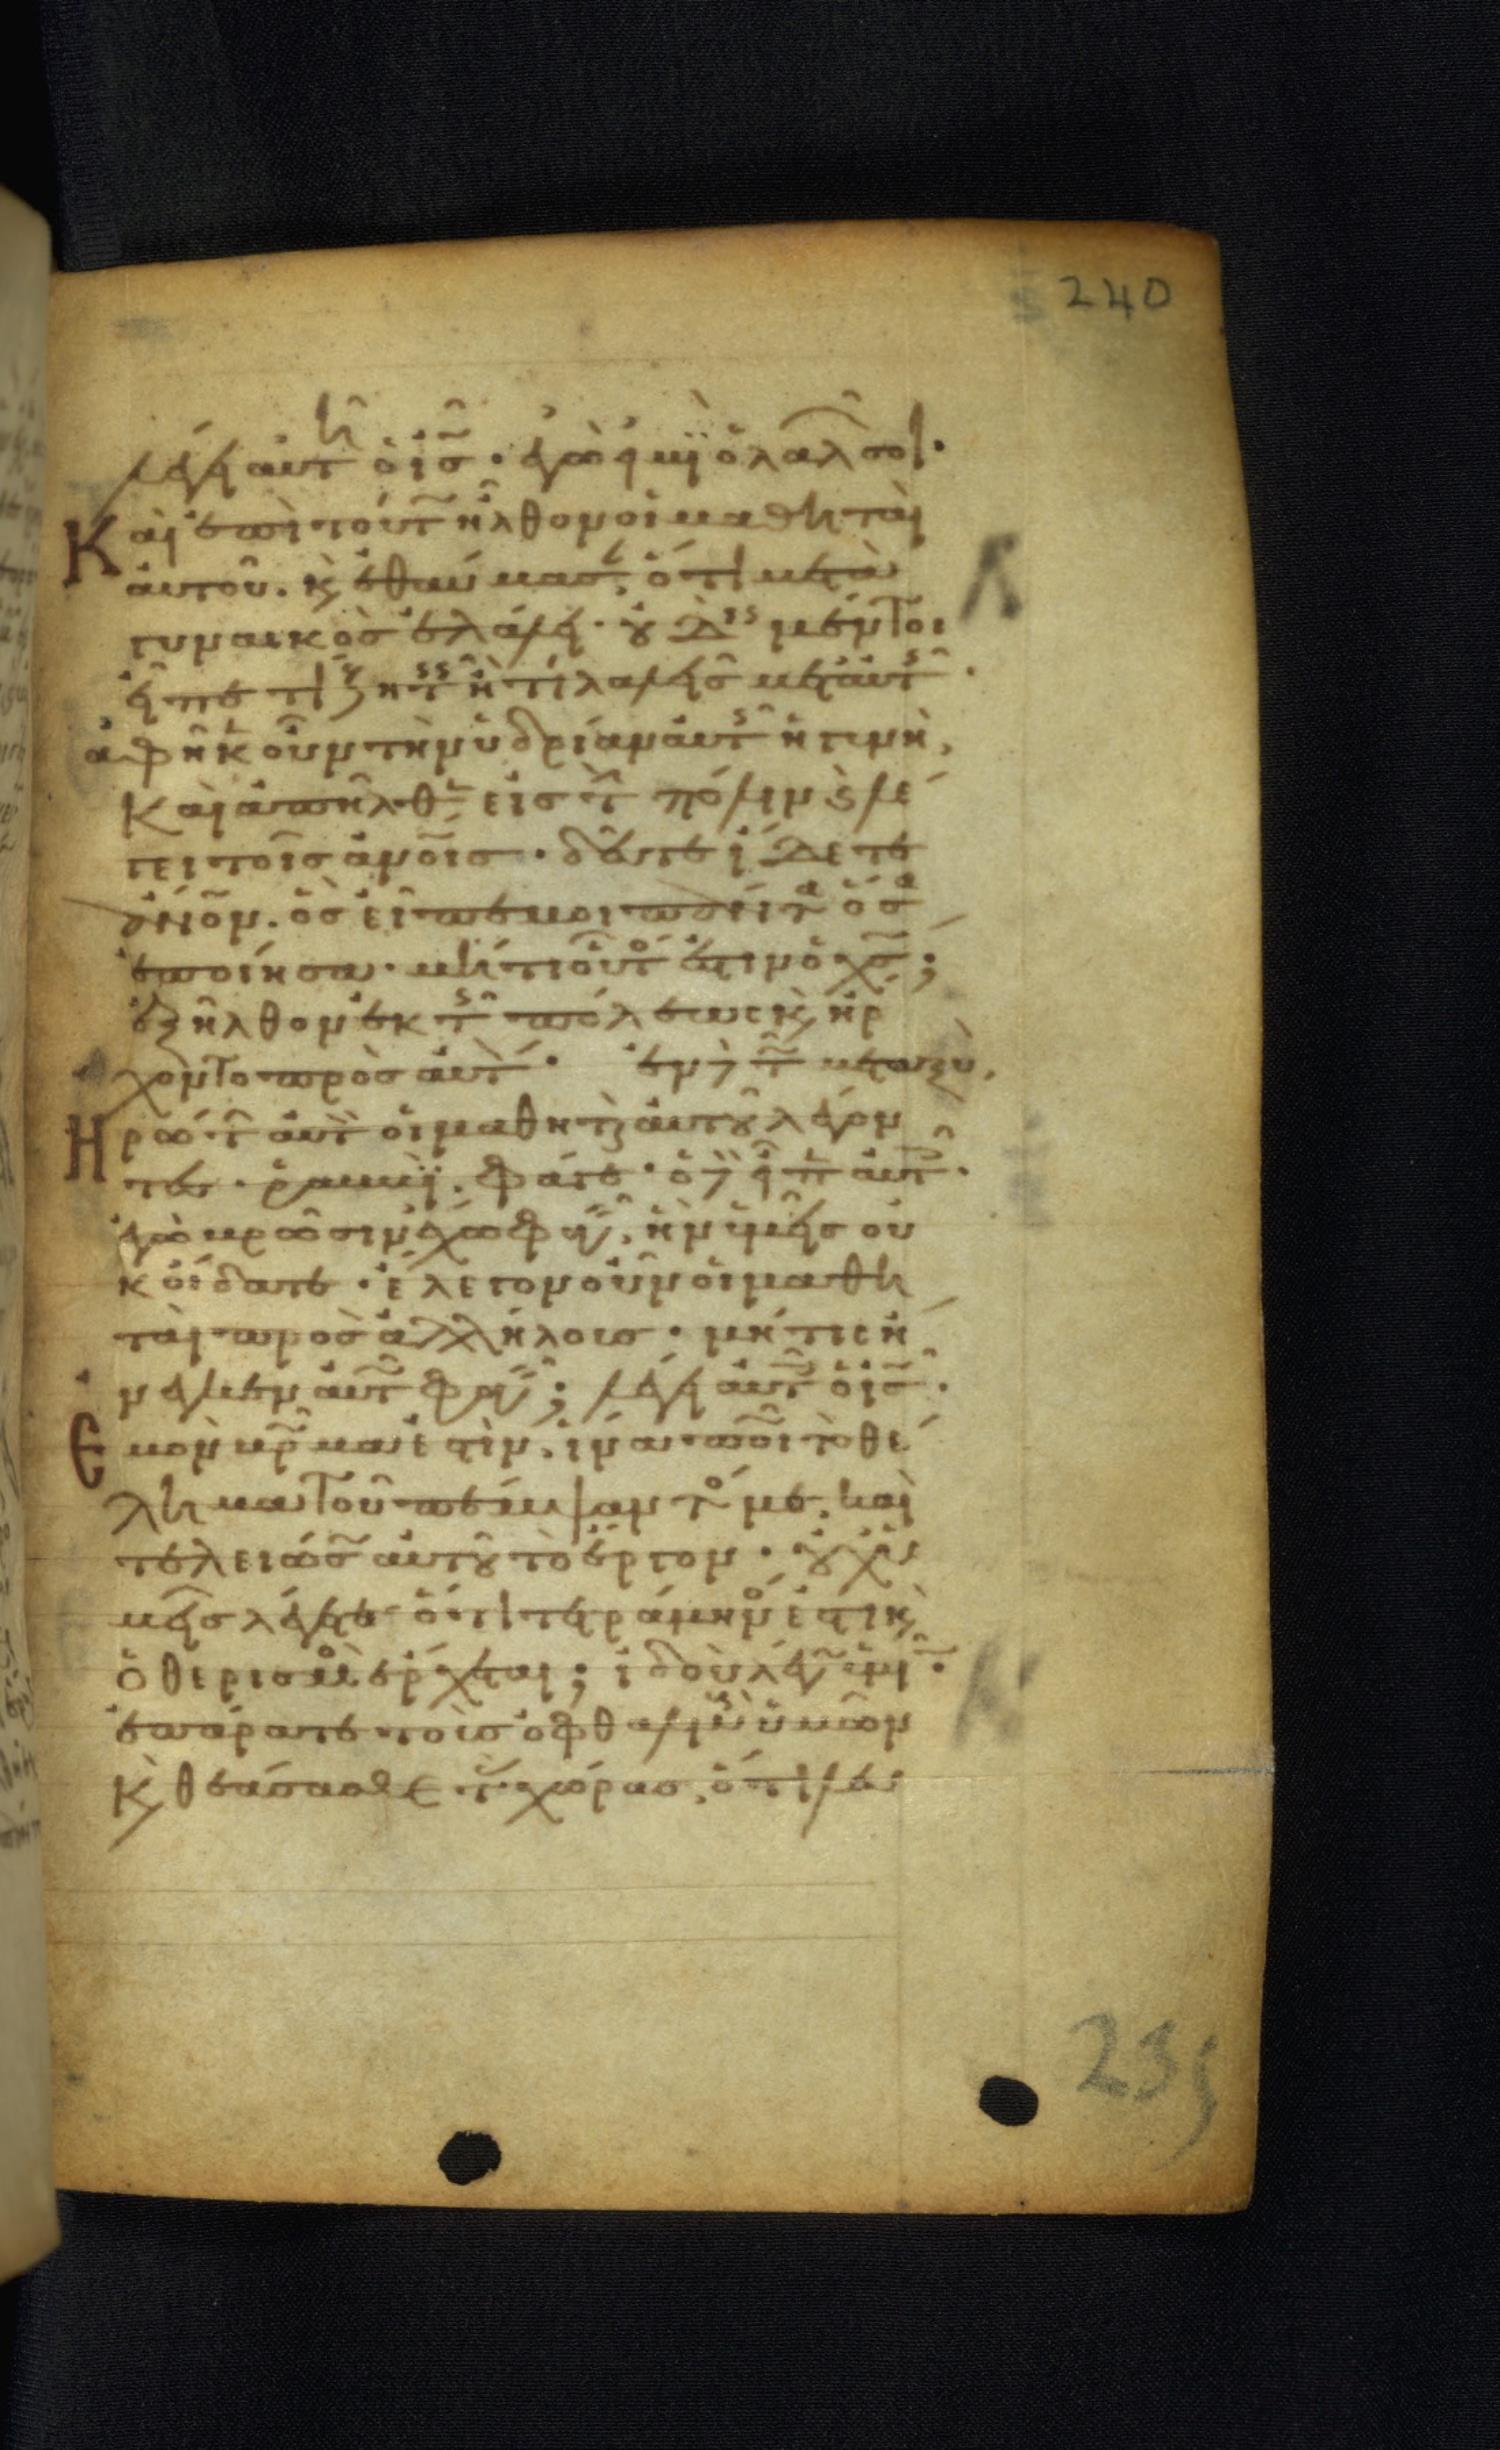 240
λέγει αυτη ὁ ις̅· ἐγώ εἰμι ὁ λαλῶν σοι·
Καὶ ἐπὶ τούτω ἦλθον οἱ μαθηταὶ
αὐτοῦ. κ̀ ἐθαύμασαν, ὅτι μετὰ
γυναικὸς ἐλάλει· οὐδεὶς μέντοι
εἶπε τί ζητεῖς ἢ τί λαλεῖς μετ' αὐτῆς·
ἀφῆκεν οὖν τὴν ὑδρίαν αὐτῆς ἡ γυνὴ,
καὶ ἀπῆλθεν εἰς τὴν πόλιν κ̀ λέ
γει τοῖς ἀνοις· δεῦτε ἴδετε
ἄνον. ὃς εἶπε μοι πάντα ὅσα
ἐποίησα· μήτι οὗτός ἐστιν ὁ χς̅;
ἐξῆλθον ἐκ τῆς πόλεως κ̀ ἤρ
χοντο πρὸς αὐτόν· ἐν δὲ τῷ μεταξὺ,
Ηρώτων αὐτὸν οἱ μαθηταὶ αὐτοῦ λέγον
τες· ῥαββὶ, φάγε· ὁ δὲ εἶπεν αὐτοῖς·
ἐγὼ βρῶσιν ἔχω φαγεῖν, ἣν ὑμεῖς οὐ
κ οἴδατε· ἔλεγον οὖν οἱ μαθη
ταὶ πρὸς ἀλλήλους· μή τις ἤ
νεγκεν αὐτῷ φαγεῖν; λέγει αὐτοῖς ὁ ις̅·
Εμὸν βρῶμα ἐστὶν, ἵνα ποιῶ τὸ θέ
λημα τοῦ πέμψαντός με, καὶ
τελειώσω αὐτοῦ τὸ ἔργον· οὐχ ὑ
μεῖς λέγετε ὅτι τετράμηνός ἐστι κ̀
ὁ θερισμὸς ἔρχεται; ἰδοὺ λέγω ὑμῖν·
ἐπάρατε τοὺς ὀφθαλμοὺς ὑμῶν
κ̀ θεάσασθε τὰς χώρας, ὅτι λευ
235